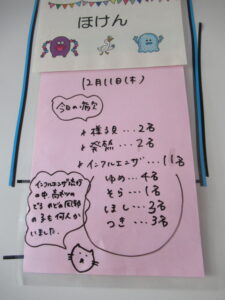 ほけん
12月11日(木)
今日の病欠
様子見…2名
発熱…2名
インフルエンザ…11名
ゆめ…4名
そら…1名
ほし…3名
つき…3名
インフルエンザ流行
の中、高熱の
でる のど風邪
の子も何人か
いました。